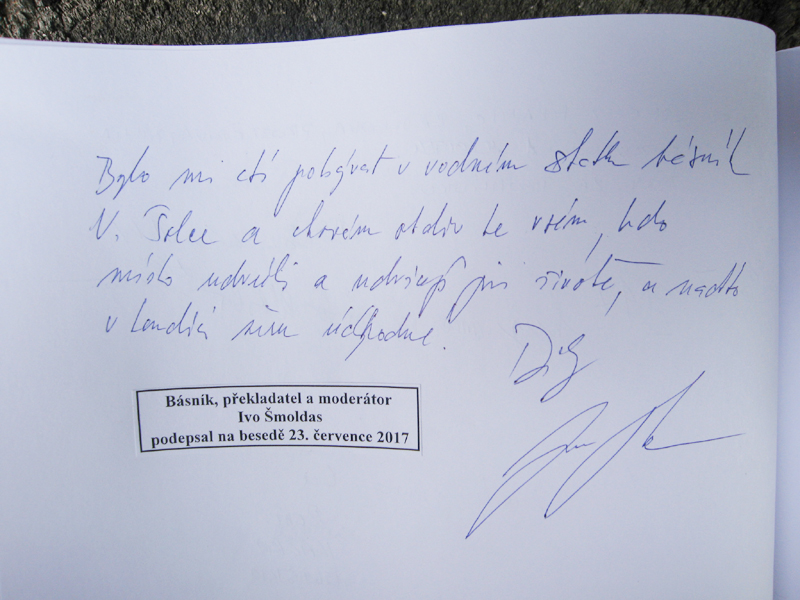 Bylo mi ctí pobývat v rodném statku básníka
V. Šolce a chovám obdiv ke všem, kdo
místo udrželi a udržují při životě, a nadto
v kondici
Díky
Básník, překladatel a moderátor
Ivo Šmoldas
podepsal na besedě 23. července 2017